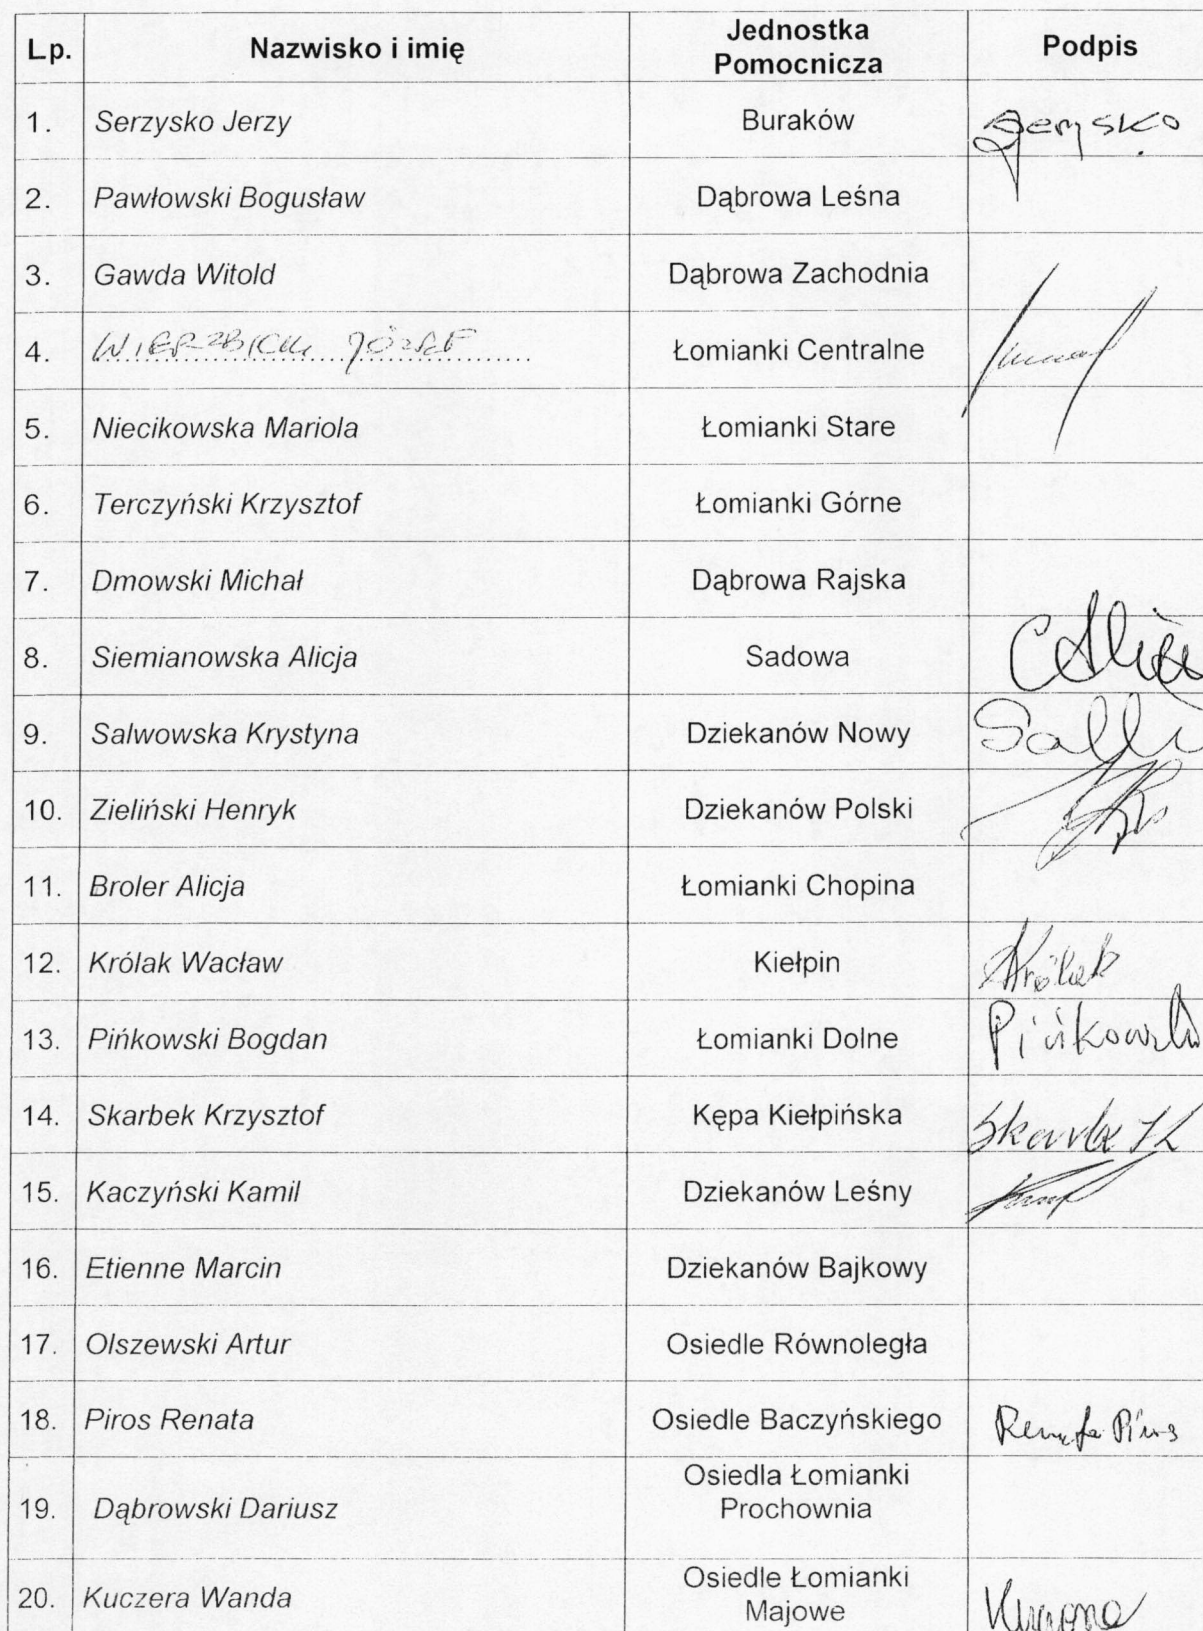 Lp. Nazwisko i imię Jednostka Pomocnicza Podpis
1. Serzysko Jerzy Buraków
2. Pawłowski Bogusław Dąbrowa Leśna
3. Gawda Witold Dąbrowa Zachodnia
4. WIERZBICKI JÓZEF Łomianki Centralne
5. Niecikowska Mariola Łomianki Stare
6. Terczyński Krzysztof Łomianki Górne
7. Dmowski Michał Dąbrowa Rajska
8. Siemianowska Alicja Sadowa
9. Salwowska Krystyna Dziekanów Nowy
10. Zieliński Henryk Dziekanów Polski
11. Broler Alicja Łomianki Chopina
12. Królak Wacław Kiełpin Królak
13. Pińkowski Bogdan Łomianki Dolne Pińkowski
14. Skarbek Krzysztof Kępa Kiełpińska
15. Kaczyński Kamil Dziekanów Leśny
16. Etienne Marcin Dziekanów Bajkowy
17. Olszewski Artur Osiedle Równoległa
18. Piros Renata Osiedle Baczyńskiego Renata Piros
19. Dąbrowski Dariusz Osiedla Łomianki Prochownia
20. Kuczera Wanda Osiedle Łomianki Majowe